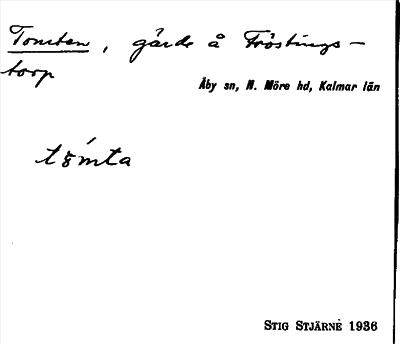 Tomten, gärde å Fröstings-
torp
Åby sn, N. Möre hd, Kalmar län
tȣ́mta
STIG STJÄRNE 1936